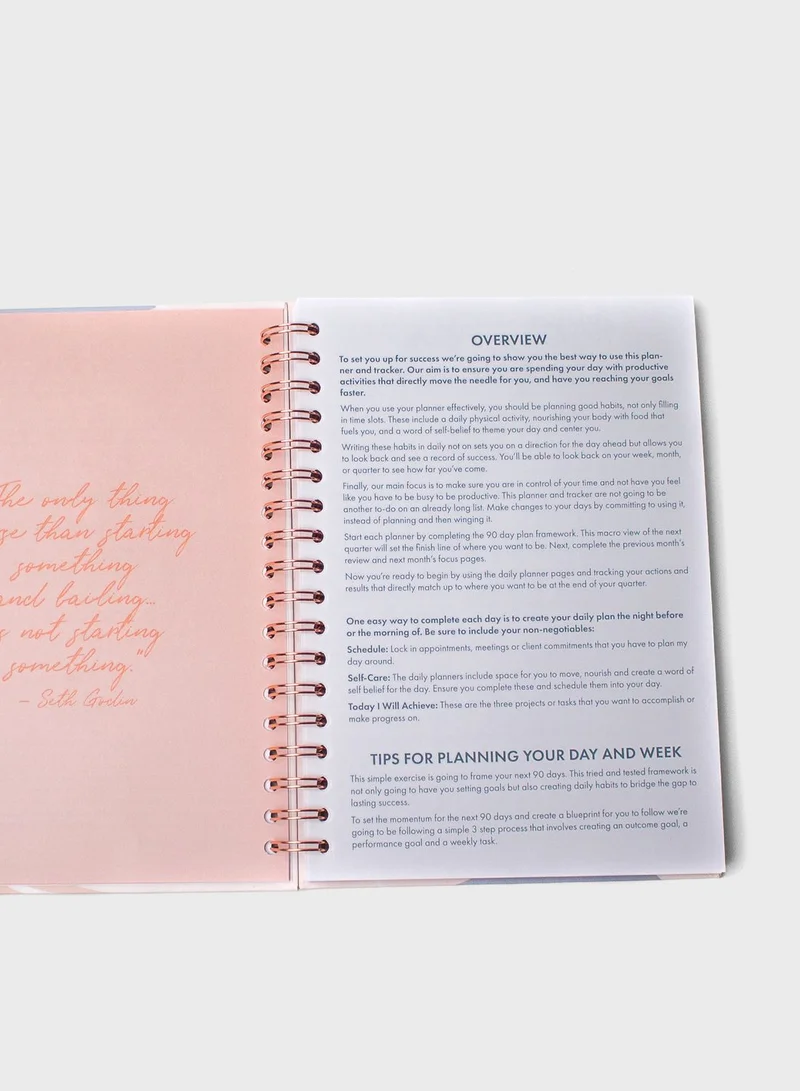 The only thing
se than starting
something
and bailing...
s not starting
something."
– Seth Godin
OVERVIEW
To set you up for success we're going to show you the best way to use this plan-
ner and tracker. Our aim is to ensure you are spending your day with productive
activities that directly move the needle for you, and have you reaching your goals
faster.
When you use your planner effectively, you should be planning good habits, not only filling
in time slots. These include a daily physical activity, nourishing your body with food that
fuels you, and a word of self-belief to theme your day and center you.
Writing these habits in daily not on sets you on a direction for the day ahead but allows you
to look back and see a record of success. You'll be able to look back on your week, month,
or quarter to see how far you've come.
Finally, our main focus is to make sure you are in control of your time and not have you feel
like you have to be busy to be productive. This planner and tracker are not going to be
another to-do on an already long list. Make changes to your days by committing to using it,
instead of planning and then winging it.
Start each planner by completing the 90 day plan framework. This macro view of the next
quarter will set the finish line of where you want to be. Next, complete the previous month's
review and next month's focus pages.
Now you're ready to begin by using the daily planner pages and tracking your actions and
results that directly match up to where you want to be at the end of your quarter.
One easy way to complete each day is to create your daily plan the night before
or the morning of. Be sure to include your non-negotiables:
Schedule: Lock in appointments, meetings or client commitments that you have to plan my
day around.
Self-Care: The daily planners include space for you to move, nourish and create a word of
self belief for the day. Ensure you complete these and schedule them into your day.
Today I Will Achieve: These are the three projects or tasks that you want to accomplish or
make progress on.
TIPS FOR PLANNING YOUR DAY AND WEEK
This simple exercise is going to frame your next 90 days. This tried and tested framework is
not only going to have you setting goals but also creating daily habits to bridge the gap to
lasting success.
To set the momentum for the next 90 days and create a blueprint for you to follow we're
going to be following a simple 3 step process that involves creating an outcome goal, a
performance goal and a weekly task.